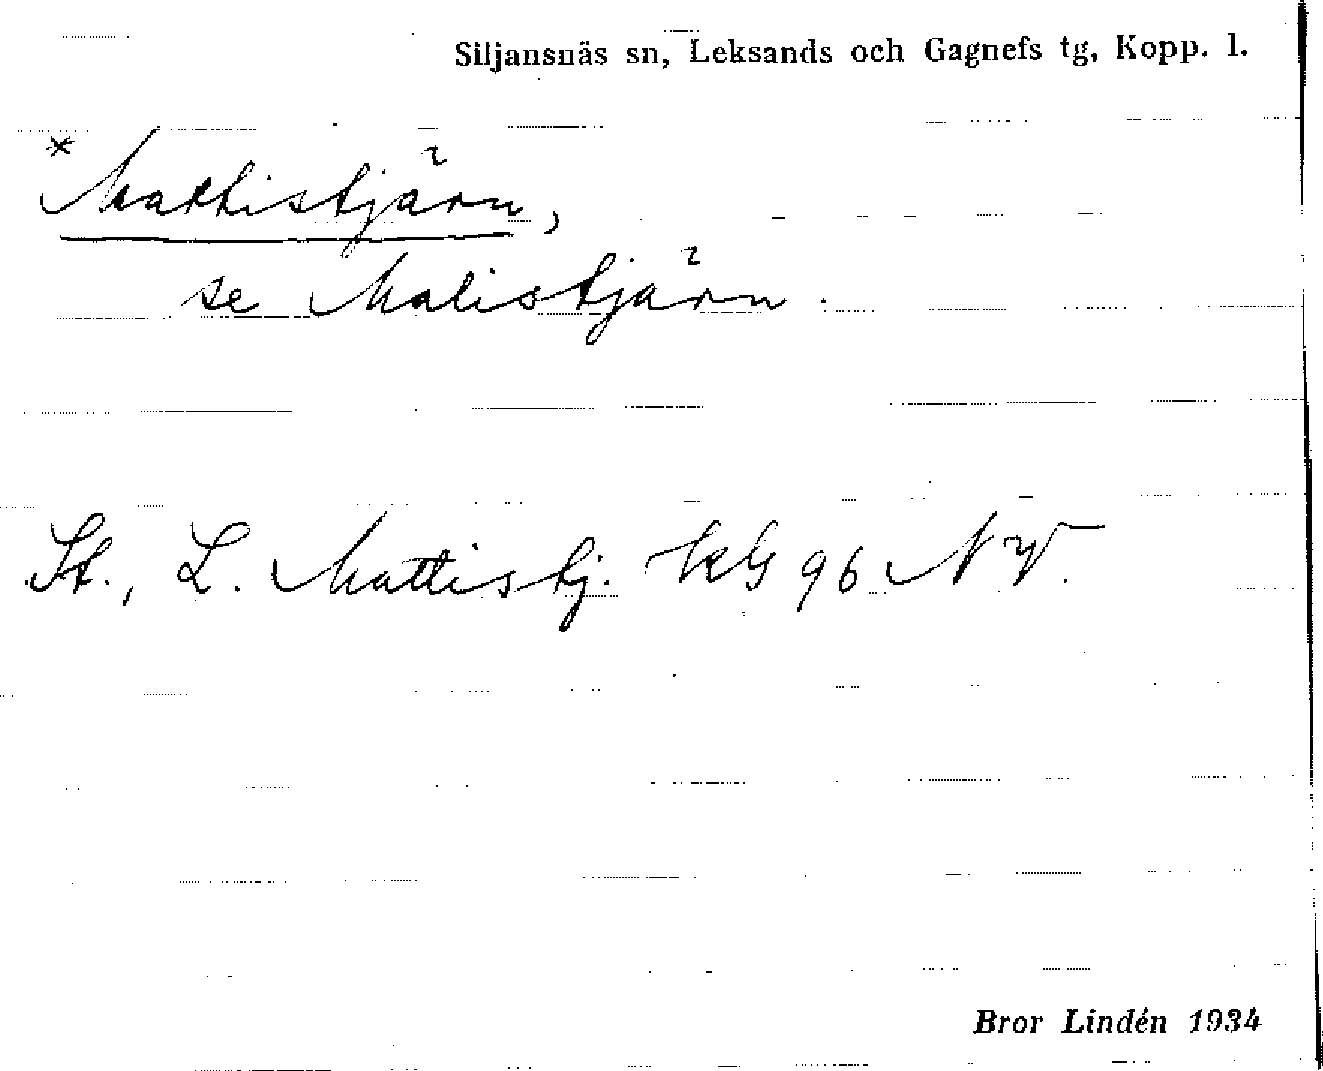 Siljansnäs sn, Leksands och Gagnefs tg, Kopp. l.
*Mattistjärn,
se Malistjärn.
St., L. Mattistj. kbl 96 NV.
Bror Lindén 1934